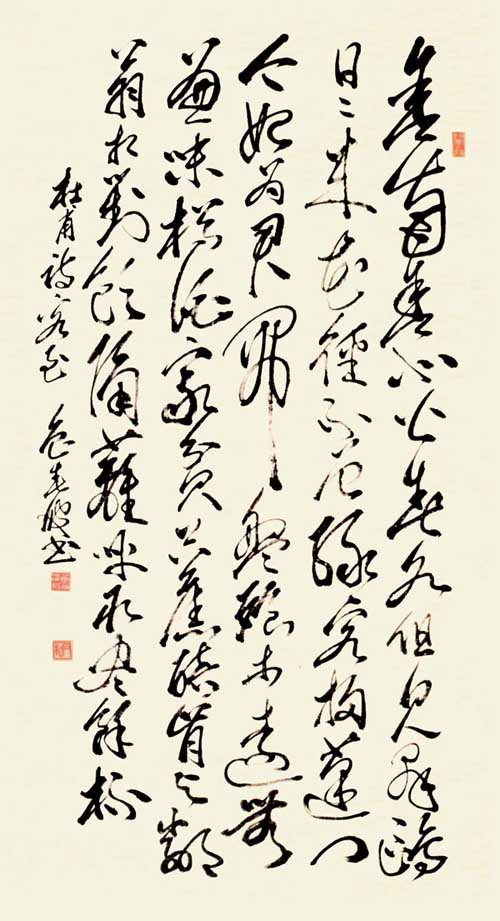 舍南舍北皆春水但見群鷗
日々來花徑不曾緣客掃蓬門
今始為君開盤飧市遠無
兼味樽酒家貧只舊醅肯與鄰
翁相對飲隔籬呼取盡餘杯
杜甫詩客至 書